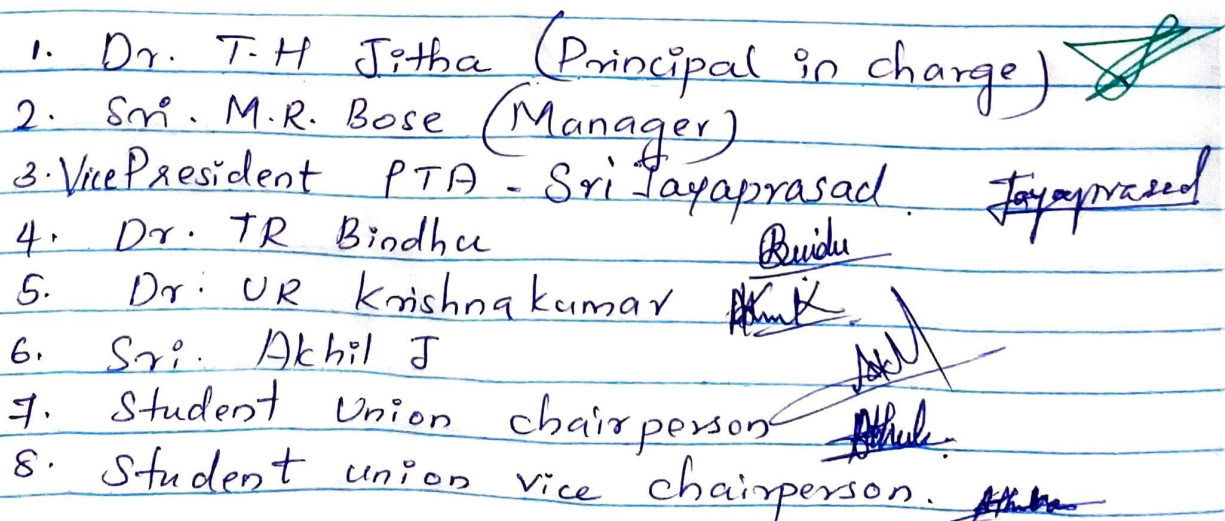 1. Dr. T.H Jitha (Principal in charge)
2. Sri. M.R. Bose (Manager)
3. Vice President PTA - Sri Jayaprasad. Jayaprasad
4. Dr. TR Bindhu
5. Dr. UR Krishnakumar
6. Sri. Akhil J
7. Student Union chairperson
8. Student union vice chairperson.